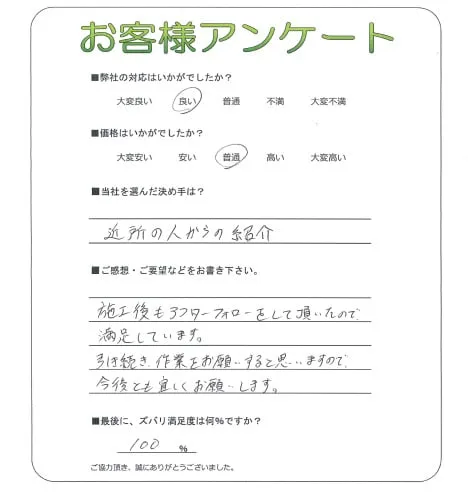 お客様アンケート
■弊社の対応はいかがでしたか？
大変良い 良い 普通 不満 大変不満
■価格はいかがでしたか？
大変安い 安い 普通 高い 大変高い
■当社を選んだ決め手は？
近所の人からの紹介
■ご感想・ご要望などをお書き下さい。
施工後もアフターフォローをして頂いたので
満足しています。
引き続き、作業をお願いすると思いますので
今後とも宜しくお願いします。
■最後に、ズバリ満足度は何%ですか？
100 %
ご協力頂き、誠にありがとうございました。